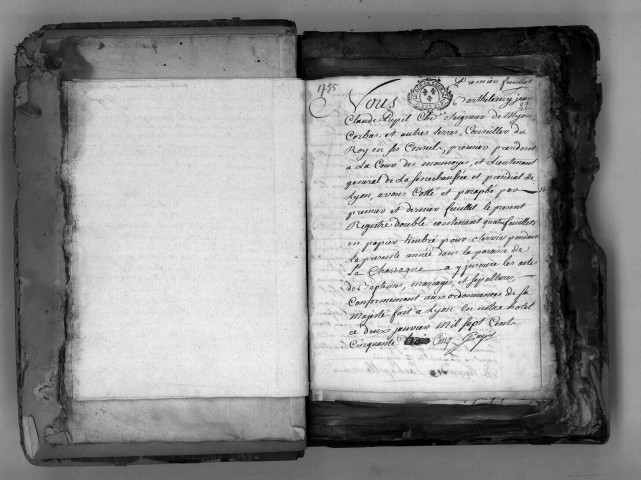 1755
Premier feuillet
Nous Barthelemy jean
Claude Pupil Cher Seigneur de Myons
Corbas, et autres terres, Conseiller du
Roy en ses Conseils, premier president
a La Cour des monnoyes, et Lieutenant
general de La senechaussée et presidial de
Lyon, avons Cotté et paraphé par
premier et dernier feuillet le present
Registre double contenant quatre feuillets
en papier timbré pour servir pendant
La presente année dans la paroisse de
La Chassagne a y inscrire les actes
de Baptemes, mariages, et sepultures,
Conformement aux ordonnances de sa
Majesté fait à Lyon en notre hotel
ce deux janvier Mil sept Cent
Cinquante Cinq Pupil